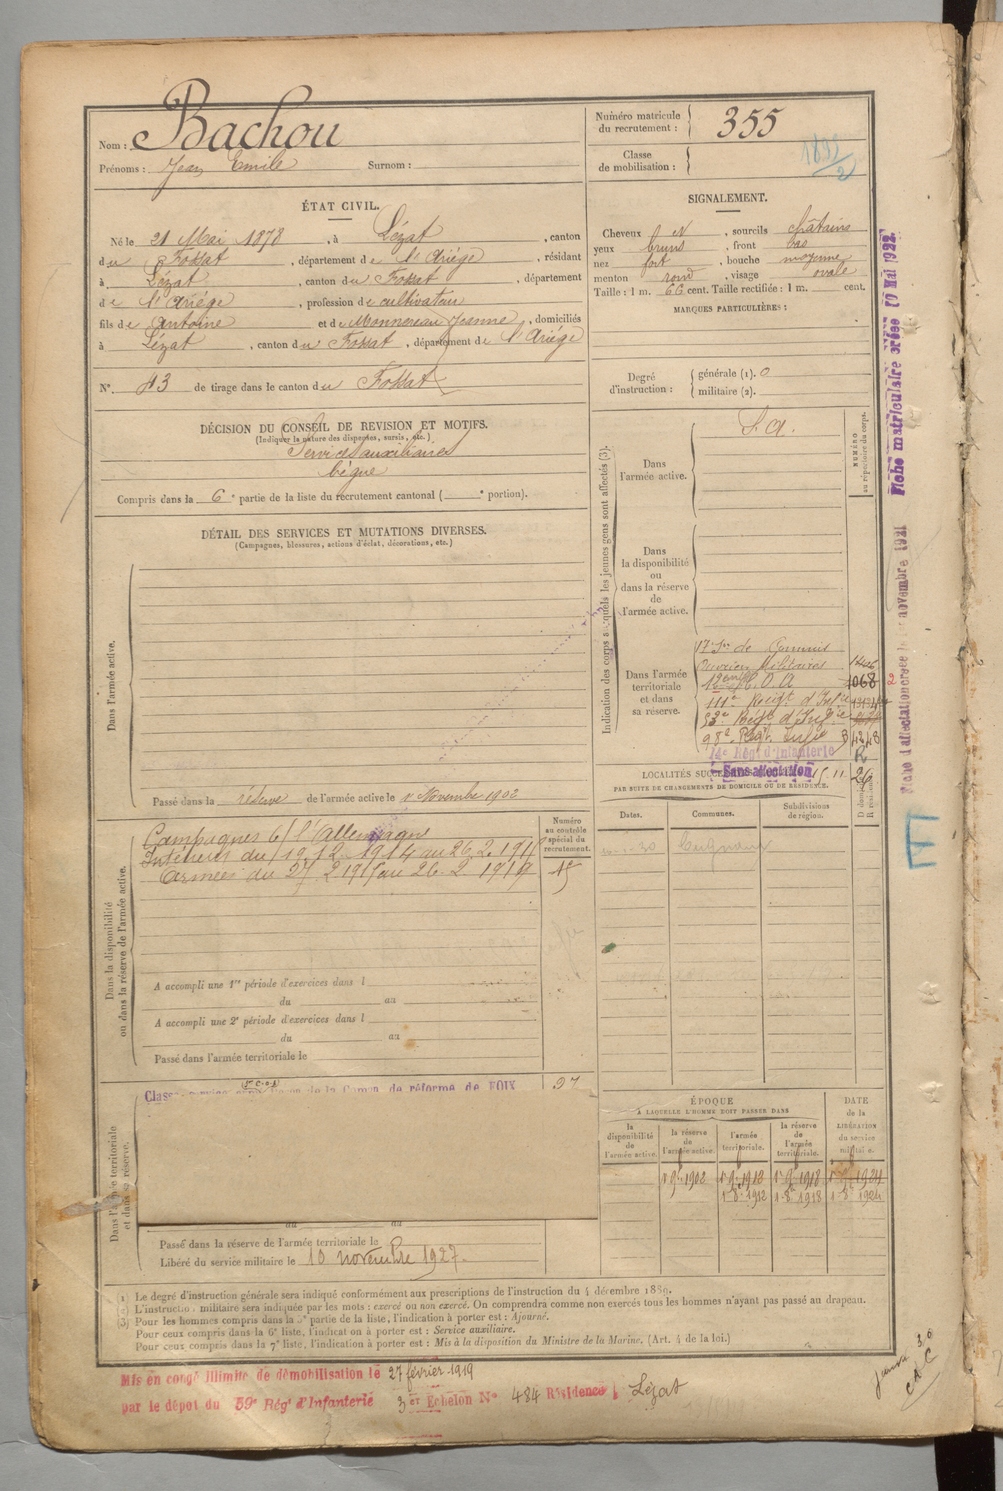 Nom : Bachou
Prénoms : Jean Emile Surnom :
Numéro matricule du recrutement : 355
Classe de mobilisation :
ÉTAT CIVIL.
Né le 21 Mai 1878, à Lézat, canton
du Fossat, département de l'Ariége, résidant
à Lézat, canton du Fossat, département
de l'Ariége, profession de cultivateur
fils de Antoine et de Monnereau Jeanne, domiciliés
à Lézat, canton du Fossat, département de l'Ariége
N° 43 de tirage dans le canton du Fossat
SIGNALEMENT.
Cheveux N, sourcils châtains
yeux bruns, front bas
nez fort, bouche moyenne
menton rond, visage ovale
Taille : 1 m. 66 cent. Taille rectifiée : 1 m. cent.
MARQUES PARTICULIÈRES :
Degré d'instruction : générale (1). 0
militaire (2).
DÉCISION DU CONSEIL DE REVISION ET MOTIFS.
(Indiquer la nature des dispenses, sursis, etc.)
Services auxiliaires
bègue
Compris dans la 6e partie de la liste du recrutement cantonal ( e portion).
DÉTAIL DES SERVICES ET MUTATIONS DIVERSES.
(Campagnes, blessures, actions d'éclat, décorations, etc.)
Dans l'armée active.
Passé dans la réserve de l'armée active le 1 Novembre 1902
Indication des corps auxquels les jeunes gens sont affectés (3).
NUMÉRO au répertoire du corps.
Dans l'armée active.
S. A.
Dans la disponibilité ou dans la réserve de l'armée active.
Dans l'armée territoriale et dans sa réserve.
17 Son de Commis
Ouvriers Militaires 1446
1068
111e Regt d'Infie
98e Regt Infie
14e Régt d'Infanterie
Sans affectation
PAR SUITE DE CHANGEMENTS DE DOMICILE OU DE RÉSIDENCE.
Dates. Communes. Subdivisions de région.
Cugnaux
Dans la disponibilité ou dans la réserve de l'armée active.
Campagnes c/ l'Allemagne
Intérieur du 19.12.1914 au 26.2.1915
Armées du 27 2 1915 au 26.2.1919
Numéro au contrôle spécial du recrutement.
A accompli une 1re période d'exercices dans l
du au
A accompli une 2e période d'exercices dans l
du au
Passé dans l'armée territoriale le
de la Comon de réforme de FOIX
Dans l'armée territoriale et dans sa réserve.
du au
Passé dans la réserve de l'armée territoriale le
Libéré du service militaire le 10 novembre 1927.
ÉPOQUE
A LAQUELLE L'HOMME DOIT PASSER DANS
la disponibilité de l'armée active. la réserve de l'armée active. l'armée territoriale. la réserve de l'armée territoriale.
DATE de la LIBÉRATION du service militaire.
1 9bre 1902 1 9bre 1912 1 9bre 1918 1 9bre 1924
1-8bre 1912 1-8bre 1918 1-8bre 1924
1) Le degré d'instruction générale sera indiqué conformément aux prescriptions de l'instruction du 4 décembre 1889.
2) L'instruction militaire sera indiquée par les mots : exercé ou non exercé. On comprendra comme non exercés tous les hommes n'ayant pas passé au drapeau.
3) Pour les hommes compris dans la 5e partie de la liste, l'indication à porter est : Ajourné.
Pour ceux compris dans la 6e liste, l'indication à porter est : Service auxiliaire.
Pour ceux compris dans la 7e liste, l'indication à porter est : Mis à la disposition du Ministre de la Marine. (Art. 4 de la loi.)
Mis en congé illimité de démobilisation le 27 février 1919
par le dépot du 59e Régt d'Infanterie 3er Echelon No 484 Résidence Lézat
Fiche matriculaire créée 19 Mai 1922.
novembre 1921